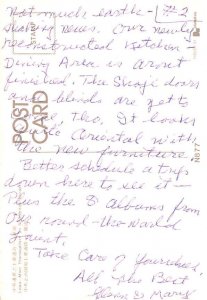 Not much earthe- #2
shaking news. Our newly
reconstructed Kitchen -
Dining Area is about
finished. The Shoji doors
and blinds are yet to
come, tho. It looks
quite Oriental with
the new furniture.
Better schedule a trip
down here to see it —
Plus the 3 albums from
our round-the-world
jaunt.
Take Care of yourselves,
All the Best
Glenn & Mary
POST
CARD
STAMP